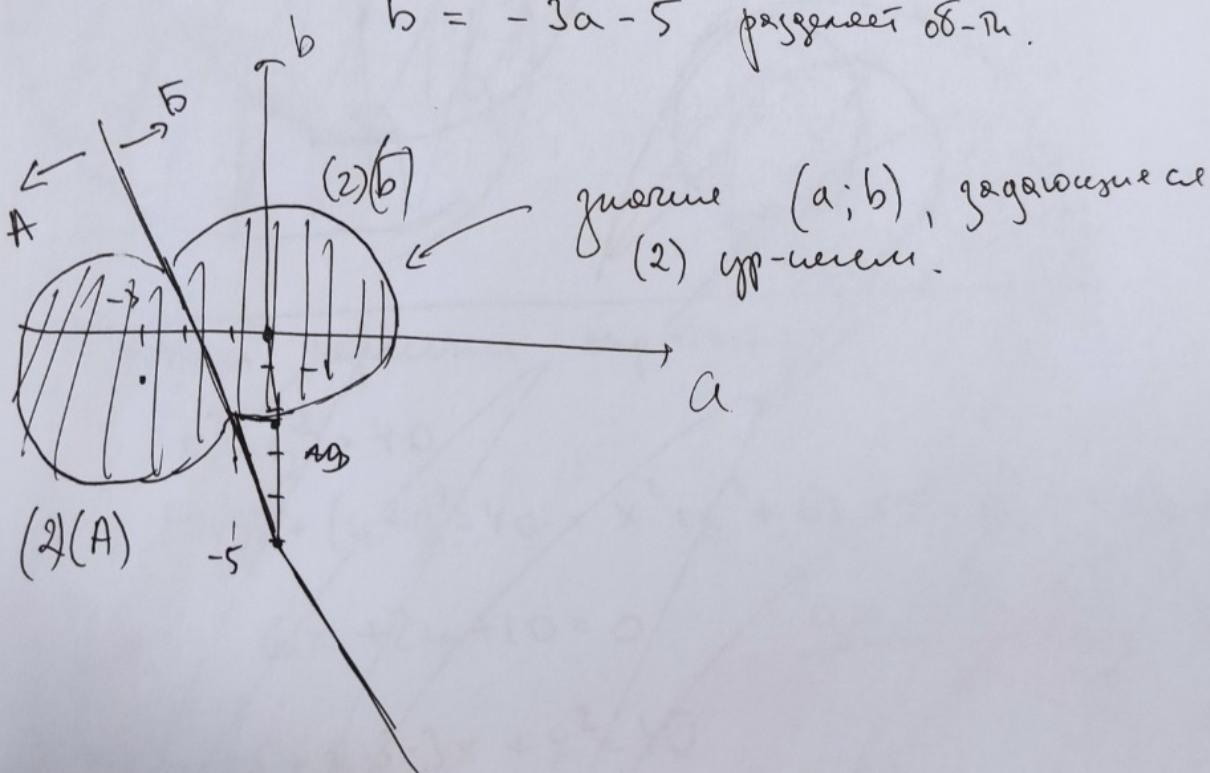 b = - 3a - 5 разделяет об-ти.
b
Б
А
(2)(Б)
значие (a; b), задающиеся
(2) ур-нием.
-3
-1
a
(2)(А)
-5